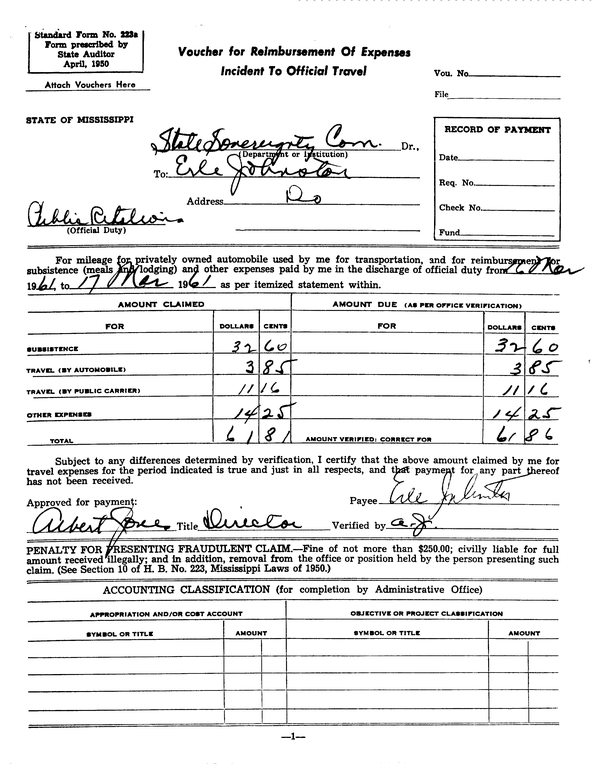 Standard Form No. 223a
Form prescribed by
State Auditor
April, 1950
Attach Vouchers Here
Voucher for Reimbursement Of Expenses
Incident To Official Travel
Vou. No.
File
STATE OF MISSISSIPPI
State Sovereignty Com. Dr.,
(Department or Institution)
To: Erle Johnston
Address Do
Public Relations
(Official Duty)
RECORD OF PAYMENT
Date
Req. No.
Check No.
Fund
For mileage for privately owned automobile used by me for transportation, and for reimbursement for
subsistence (meals and lodging) and other expenses paid by me in the discharge of official duty from 6 Mar
1961, to 17 Mar 1961 as per itemized statement within.
AMOUNT CLAIMED AMOUNT DUE (AS PER OFFICE VERIFICATION)
FOR DOLLARS CENTS FOR DOLLARS CENTS
SUBSISTENCE 32 60 32 60
TRAVEL (BY AUTOMOBILE) 3 85 3 85
TRAVEL (BY PUBLIC CARRIER) 11 16 11 16
OTHER EXPENSES 14 25 14 25
TOTAL 61 81 AMOUNT VERIFIED: CORRECT FOR 61 86
Subject to any differences determined by verification, I certify that the above amount claimed by me for
travel expenses for the period indicated is true and just in all respects, and that payment for any part thereof
has not been received.
Approved for payment: Payee Erle Johnston
Albert Jones Title Director Verified by a.J.
PENALTY FOR PRESENTING FRAUDULENT CLAIM.—Fine of not more than $250.00; civilly liable for full
amount received illegally; and in addition, removal from the office or position held by the person presenting such
claim. (See Section 10 of H. B. No. 223, Mississippi Laws of 1950.)
ACCOUNTING CLASSIFICATION (for completion by Administrative Office)
APPROPRIATION AND/OR COST ACCOUNT OBJECTIVE OR PROJECT CLASSIFICATION
SYMBOL OR TITLE AMOUNT SYMBOL OR TITLE AMOUNT
—1—